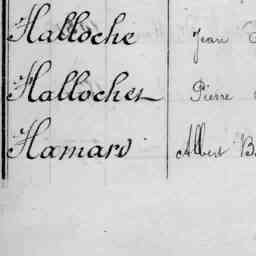 Halloche Jean
Halloches Pierre
Hamard Albert B